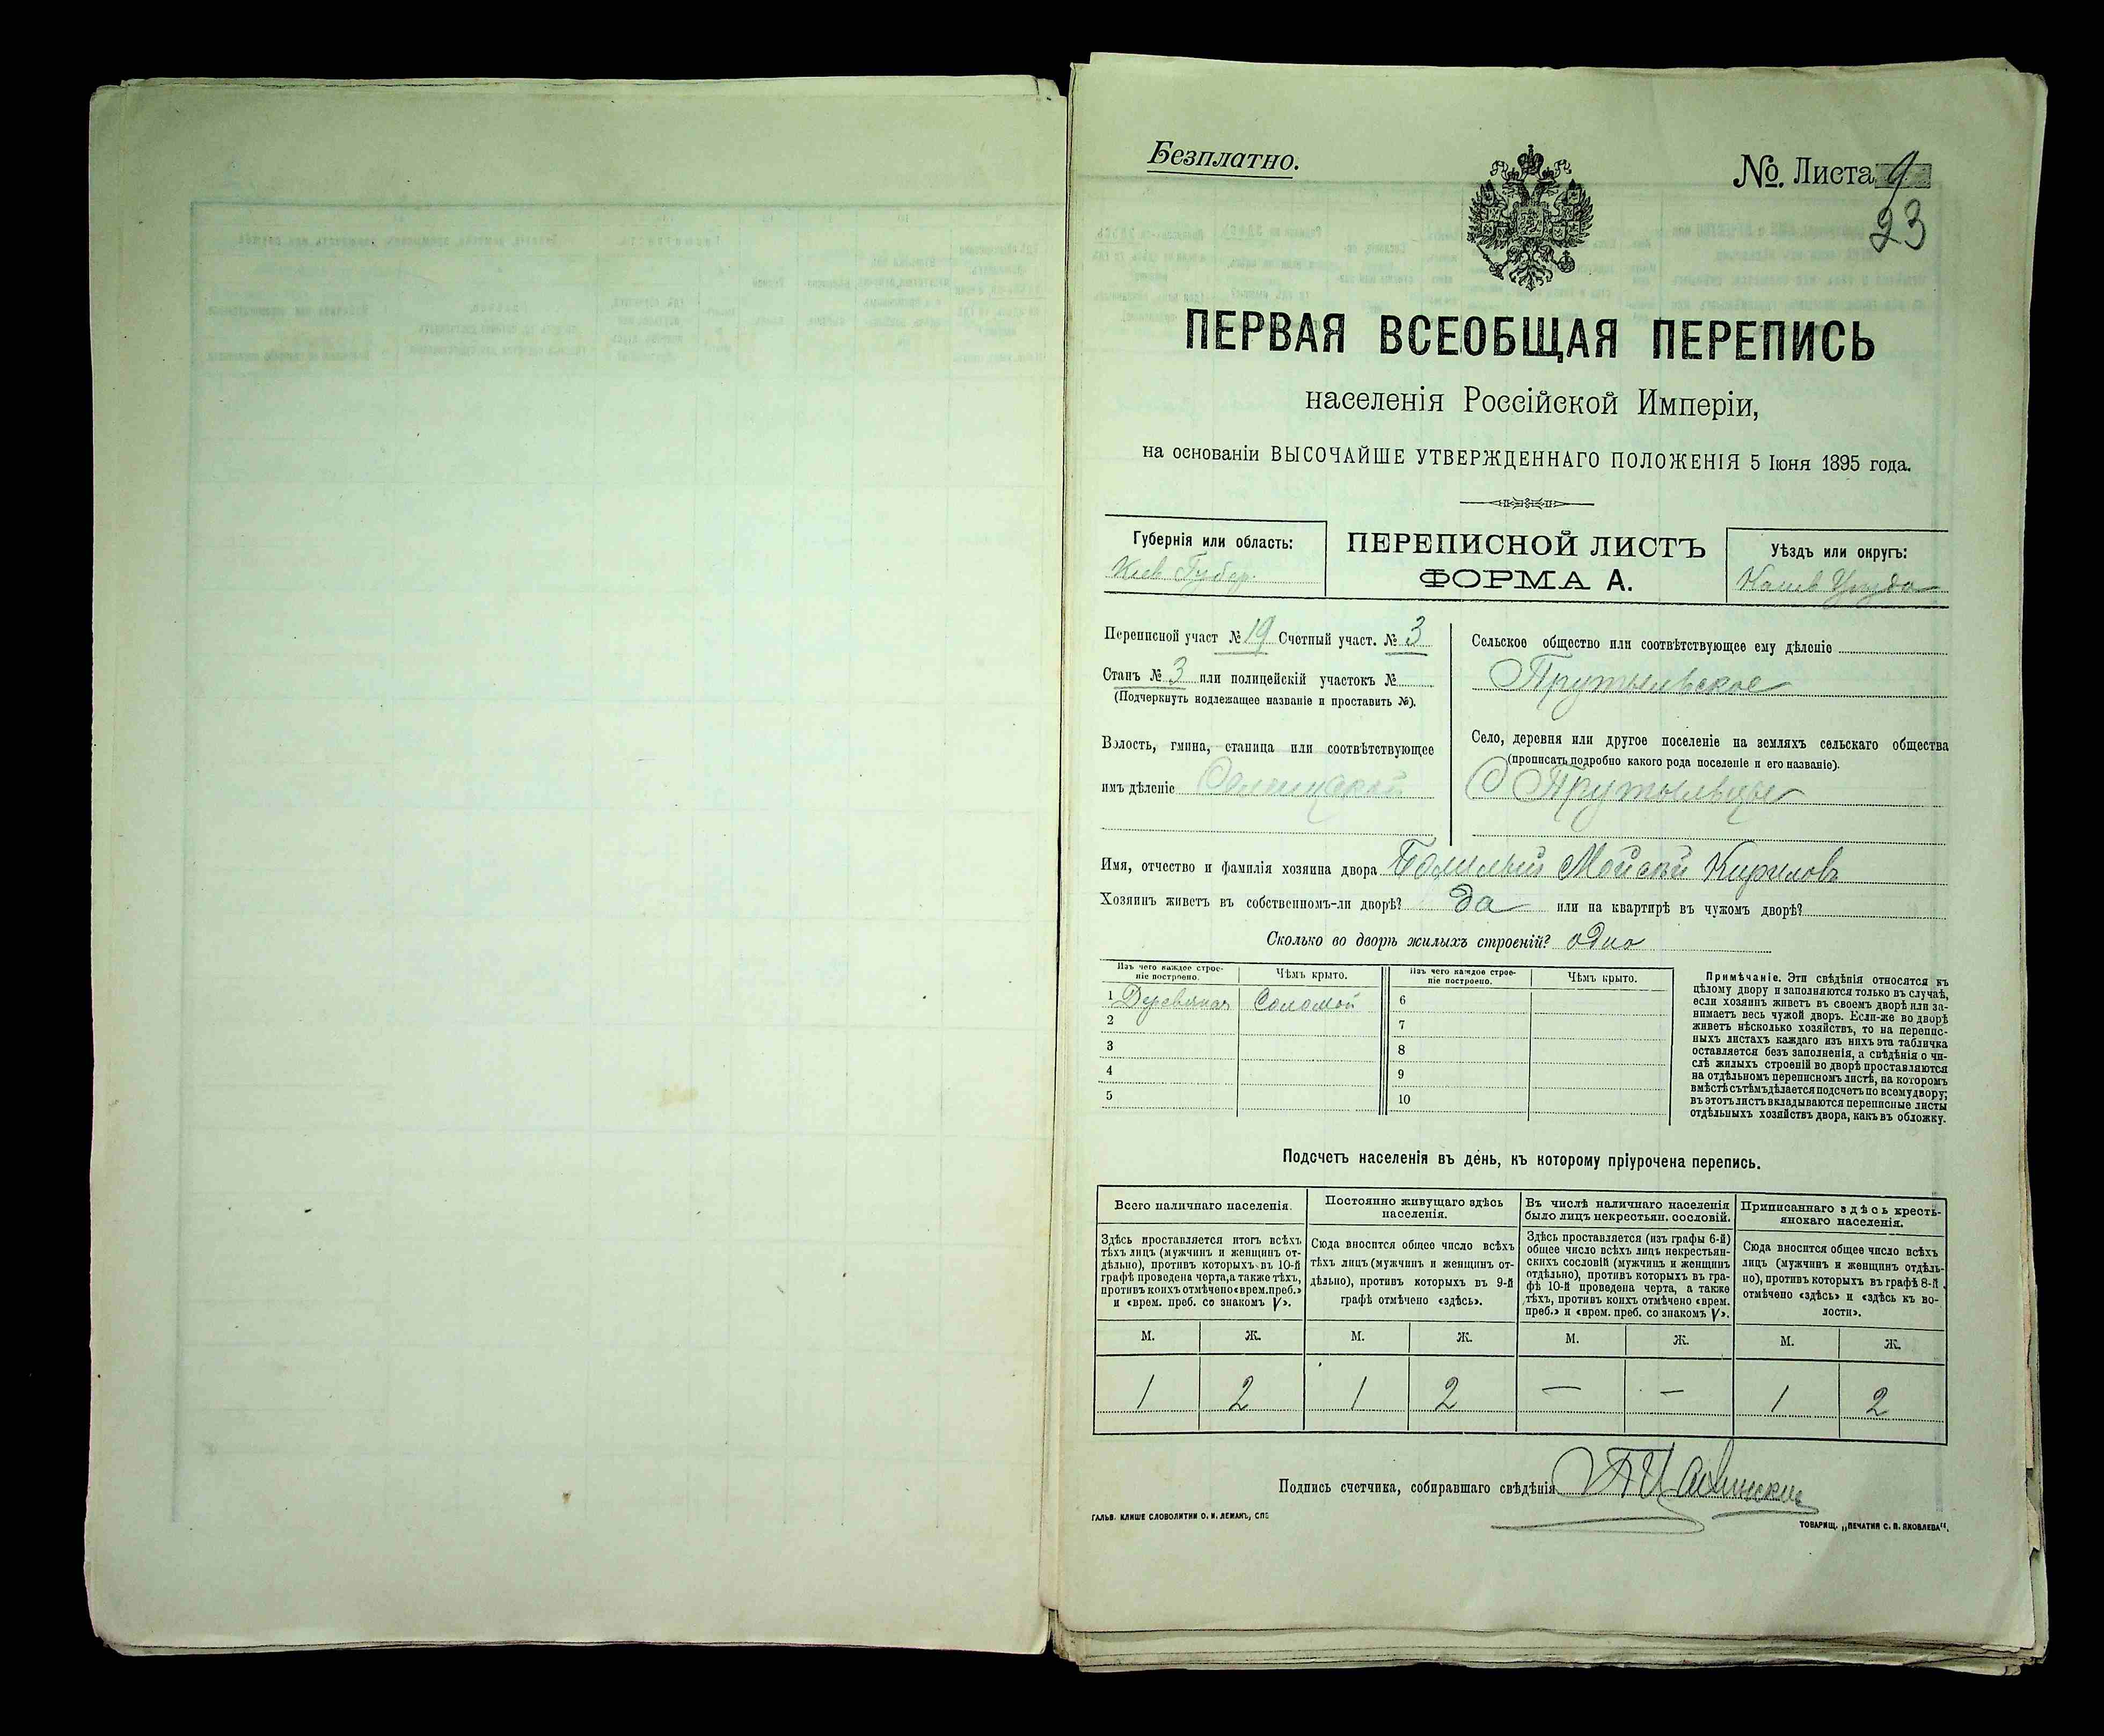 Безплатно.
№. Листа 9
23
ПЕРВАЯ ВСЕОБЩАЯ ПЕРЕПИСЬ
населенія Россійской Имперіи,
на основаніи ВЫСОЧАЙШЕ УТВЕРЖДЕННАГО ПОЛОЖЕНІЯ 5 Іюня 1895 года.
Губернія или область:
Киев Губер.
ПЕРЕПИСНОЙ ЛИСТЪ
ФОРМА А.
Уѣздъ или округъ:
Канев Уезда
Переписной участ № 19 Счетный участ. № 3
Станъ № 3 или полицейскій участокъ №
(Подчеркнуть подлежащее названіе и проставить №).
Волость, гмина, станица или соотвѣтствующее
имъ дѣленіе
Сельское общество или соотвѣтствующее ему дѣленіе
Прутыльское
Село, деревня или другое поселеніе на земляхъ сельскаго общества
(прописать подробно какого рода поселеніе и его названіе).
С
Имя, отчество и фамилія хозяина двора Мойсей Кирилов
Хозяинъ живетъ въ собственномъ-ли дворѣ? да или на квартирѣ въ чужомъ дворѣ?
Сколько во дворѣ жилыхъ строеній? одно
Изъ чего каждое строе-
ніе построено.
Чѣмъ крыто.
1 Деревяная Соломой
2
3
4
5
Изъ чего каждое строе-
ніе построено.
Чѣмъ крыто.
6
7
8
9
10
Примѣчаніе. Эти свѣдѣнія относятся къ
цѣлому двору и заполняются только въ случаѣ,
если хозяинъ живетъ въ своемъ дворѣ или за-
нимаетъ весь чужой дворъ. Если-же во дворѣ
живетъ нѣсколько хозяйствъ, то на перепис-
ныхъ листахъ каждаго изъ нихъ эта табличка
оставляется безъ заполненія, а свѣдѣнія о чи-
слѣ жилыхъ строеній во дворѣ проставляются
на отдѣльномъ переписномъ листѣ, на которомъ
вмѣстѣ съ тѣмъ дѣлается подсчетъ по всему двору;
въ этотъ листъ вкладываются переписные листы
отдѣльныхъ хозяйствъ двора, какъ въ обложку.
Подсчетъ населенія въ день, къ которому пріурочена перепись.
Всего наличнаго населенія.
Здѣсь проставляется итогъ всѣхъ
тѣхъ лицъ (мужчинъ и женщинъ от-
дѣльно), противъ которыхъ въ 10-й
графѣ проведена черта, а также тѣхъ,
противъ коихъ отмѣчено «врем. преб.»
и «врем. преб. со знакомъ V».
М. Ж.
1 2
Постоянно живущаго здѣсь
населенія.
Сюда вносится общее число всѣхъ
тѣхъ лицъ (мужчинъ и женщинъ от-
дѣльно), противъ которыхъ въ 9-й
графѣ отмѣчено «здѣсь».
М. Ж.
1 2
Въ числѣ наличнаго населенія
было лицъ некрестьян. сословій.
Здѣсь проставляется (изъ графы 6-й)
общее число всѣхъ лицъ некрестьян-
скихъ сословій (мужчинъ и женщинъ
отдѣльно), противъ которыхъ въ гра-
фѣ 10-й проведена черта, а также
тѣхъ, противъ коихъ отмѣчено «врем.
преб.» и «врем. преб. со знакомъ V».
М. Ж.
— —
Приписаннаго здѣсь кресть-
янскаго населенія.
Сюда вносится общее число всѣхъ
лицъ (мужчинъ и женщинъ отдѣль-
но), противъ которыхъ въ графѣ 8-й
отмѣчено «здѣсь» и «здѣсь къ во-
лости».
М. Ж.
1 2
Подпись счетчика, собиравшаго свѣдѣнія
ГАЛЬВ. КЛИШЕ СЛОВОЛИТНИ О. И. ЛЕМАНЪ, СПБ
ТОВАРИЩ. „ПЕЧАТНЯ С. П. ЯКОВЛЕВА".